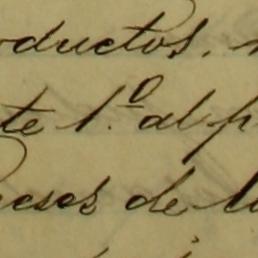 oductos.
te 1.º al p
eses de l